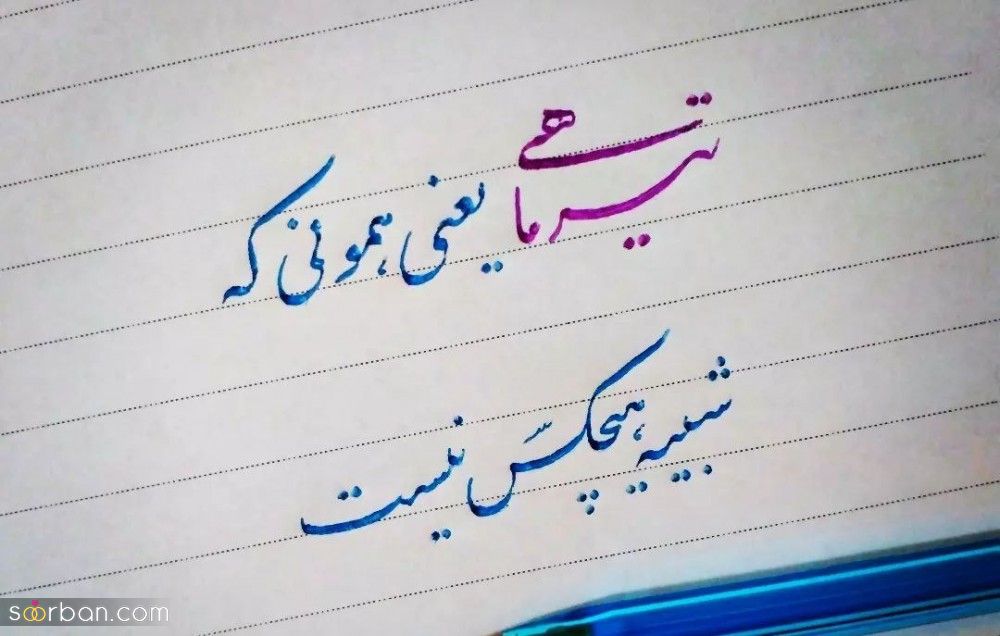 تیر ماهی یعنی همونی که
شبیه هیچکس نیست
soorban.com